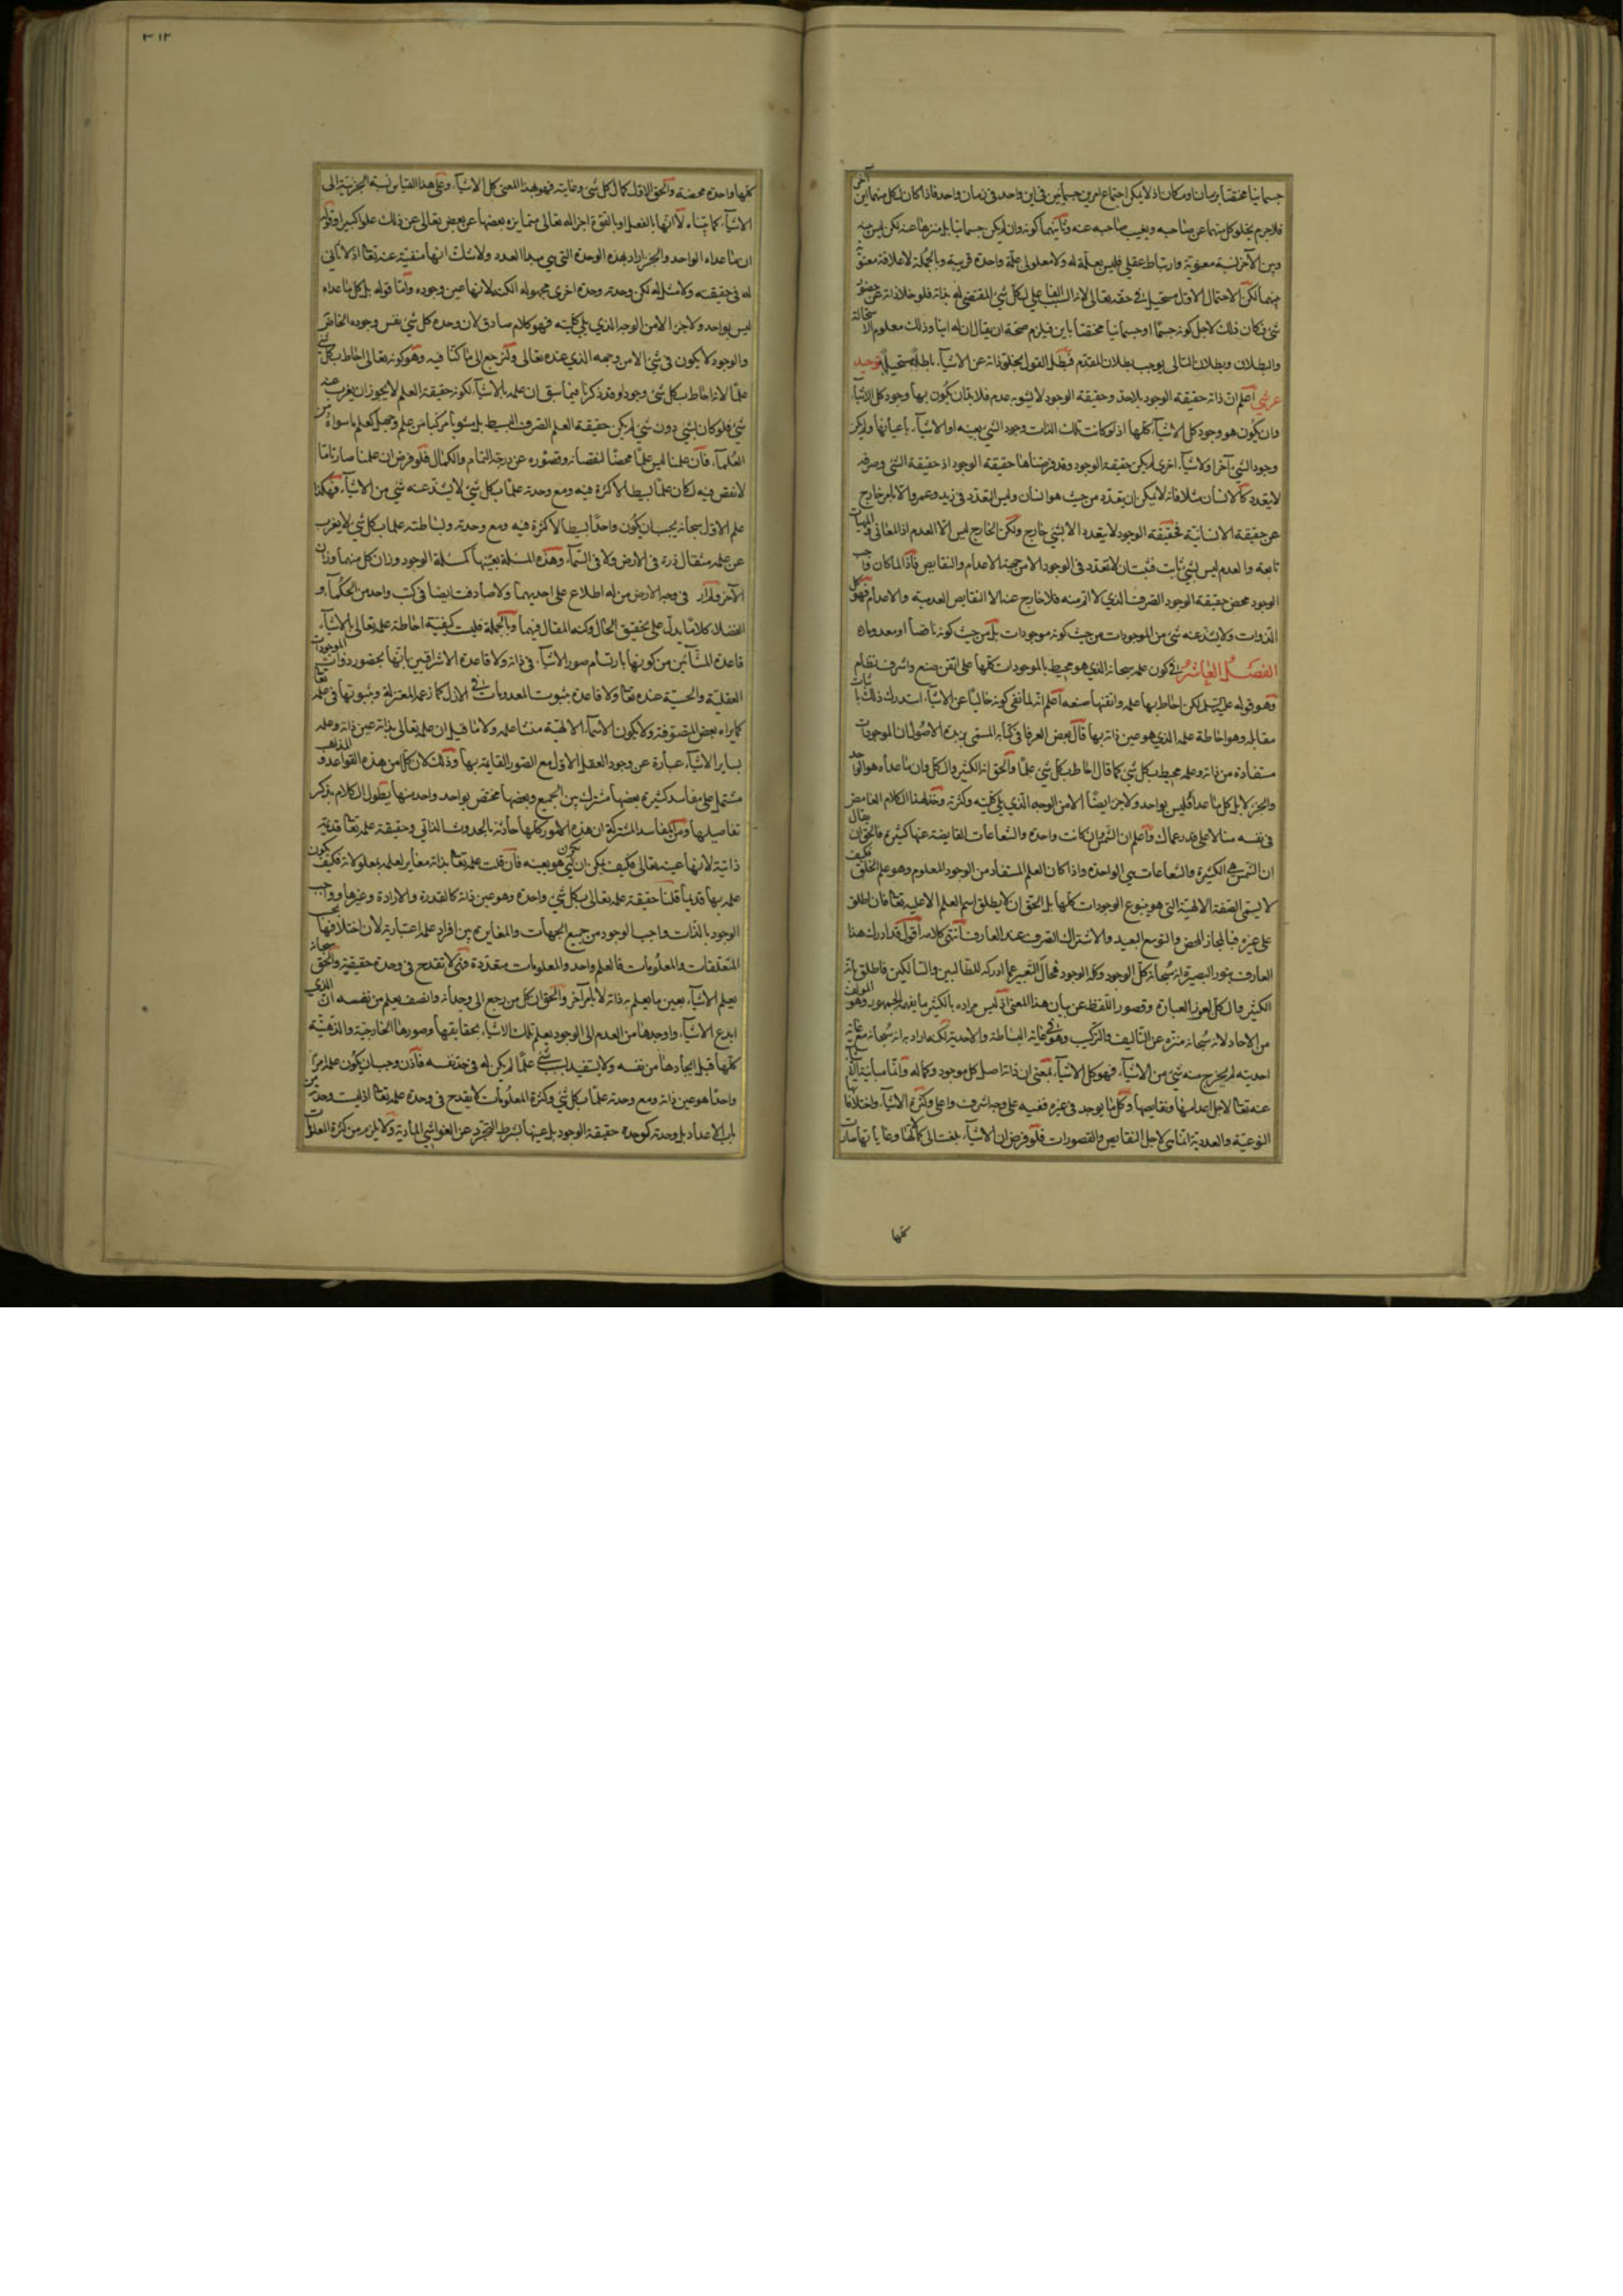 جسمانيا مختصا بزمان او مكان اذ لا يمكن اجتماع امرين جسمانيين في اين واحد و في زمان واحد فاذا كان لكل منهما اين آخر
فلاجرم يخلو كل منهما عن صاحبه و يغيب صاحبه عنه و ثانيهما كونه وان لم يكن جسمانيا بل منزها عنه لكن ليس بينه
وبين الآخر نسبة معنوية وارتباط عقلي فليس بعلة له ولا معلول علة واحدة قريبة وبالجملة لا علاقة معنوية
بينهما لكن الاحتمال الاول مستحيل في حقه تعالى لانه السبب الفاعلي لكل شي المقتضي له بذاته فلو خلا ذاته عن حضور
شي فكان ذلك لاجل كونه جسما او جسمانيا مختصا باين فيلزم صحة ان يقال ان له اينا وذلك معلوم الاستحالة
والبطلان وبطلان التالي يوجب بطلان المقدم فبطل القول بخلو ذاته عن الاشياء باطل مستحيل توحيد
عرشي اعلم ان ذاته حقيقة الوجود بلا حد وحقيقة الوجود لا يشوبه عدم فلا بد ان يكون بها وجود كل الاشياء
وان يكون هو وجود كل الاشياء كلها اذ لو كانت تلك الذات وجود الشي بعينه او لاشياء باعيانها ولم يكن
وجود الشي آخر او لاشياء اخرى لم يكن حقيقة الوجود وقد فرضناها حقيقة الوجود اذ حقيقة الشي وصرفه
لا يتعدد كالانسان مثلا فانه لا يمكن ان يتعدد من حيث هو انسان وليس التعدد في زيد وعمرو الا بامر خارج
عن حقيقة الانسانية فحقيقة الوجود لا يتعدد الا بشي خارج ولكن الخارج ليس الا العدم اذ المعاني والمهيات
تابعة والعدم ليس بشي ثابت فثبت ان لا تعدد في الوجود الا من جهة الاعدام والنقايص فاذا لما كان واجب
الوجود محض حقيقة الوجود الصرف الذي لا اتم منه فلا خارج عنه الا النقايص العدمية والاعدام فهو كل
الذوات ولا يشذ عنه شي من الموجودات من حيث كونه موجودات بل من حيث كونه ناقصا او معدوما
الفصل العاشر في كون علمه سبحانه الذي هو محيط بالموجودات كلها على اتقن صنع واشرف نظام
وهو قوله لكن احاط بها علمه واتقنها صنعه اعلم انه لما نفى كونه خاليا عن الاشياء استدرك ذلك باثبات
مقابله وهو احاطة علمه الذي هو عين ذاته بها قال بعض العرفا في كتابه المسمى بزبدة الاصول ان الموجودات
مستفادة من ذاته وعلمه محيط بكل شي كما قال احاط بكل شي علما والحق انه الكثير والكل وان ما عداه هو الواحد
والجزء لا بل كل ما عداه فليس بواحد ولا جزء ايضا الا من الوجه الذي يلي كليته وكثرته وخذ لهذا الكلام الغامض
في نفسه مثالا على قدر عقلك واعلم ان الشمس وان كانت واحدة والشعاعات الفايضة عنها كثيرة فالحق ان يقال
ان الشمس هي الكثيرة والشعاعات هي الواحدة واذا كان العلم المستفاد من الوجود المعلوم وهو علم الخلق فكيف
لا يسمى الصفة الالهية التي هو ينبوع الوجودات كلها بل الحق ان لا يطلق اسم العلم الا عليه تعالى فان اطلق
على غيره فبالمجاز المحض والتوسع البعيد والاشتراك الصرف عند العارف انتهى كلامه اقول قد ادرك هذا
العارف بنور البصيرة انه سبحانه كل الوجود وكله الوجود فحال التعبير عما ادركه للطالبين والسالكين فاطلق بانه
الكثير والكل لعوز العبارة وقصور اللفظ عن بيان هذا المعنى اذ ليس مراده بالكثير ما يفهمه الجمهور وهو المؤلف
من الاحاد لانه سبحانه منزه عن التاليف والتركيب وهو في غاية البساطة والاحدية لكنه اراد به انه سبحانه مع غاية
احديته لم يخرج منه شي من الاشياء فهو كل الاشياء بمعنى ان ذاته اصل كل موجود وكماله وانما مباينة الاشياء
عنه تعالى لاجل اعدامها ونقايصها وكل ما يوجد في غيره ففيه على وجه اشرف واعلى وكثرة الاشياء واختلافها
النوعية والعددية انما هي لاجل النقايص والقصورات فلو فرض ان الاشياء بلغت الى كمالها وغاياتها صارت
كلها
٣١٢
كلها واحدة محضة والحق الاول كمال كل شي وغايته فهو بهذا المعنى كل الاشياء وعلى هذا القياس نسبة الجزئية الى
الاشياء كما بيناه لا انها بالفعل او بالقوة اجزاء له تعالى متمايزة بعضها عن بعض تعالى عن ذلك علوا كبيرا وقوله
ان ما عداه الواحد والجزء اراد بهذه الوحدة التي هي مبدا العدد ولا شك انها منفية عنه تعالى اذ لا ثاني
له في حقيقته ولا مثل له لكن وحدته وحدة اخرى مجهولة الكنه لانها عين وجوده واما قوله بل كل ما عداه
ليس بواحد ولا جزء الا من الوجه الذي يلي كليته فهو كلام صادق لان وحدة كل شي نفس وجوده الخاص
والوجود لا يكون في شي الا من وجهه الذي عنده تعالى ولنرجع الى ما كنا فيه وهو كونه تعالى احاط بكل شي
علما لانه احاط بكل شي وجودا وقد ذكرنا فيما سبق ان علمه بالاشياء لكونه حقيقة العلم لا يجوز ان يعزب عنه
شي فلو كان بشي دون شي لم يكن حقيقة العلم الصرف البسيط بل مشوبا مركبا من علم وجهل كعلم ما سواه من
العلماء فان علمنا ليس علما محضا لنقصانه وقصوره عن درجة التمام والكمال فلو فرض ان علمنا صار تاما
لا نقص فيه لكان علما بسيطا لا كثرة فيه ومع وحدته علما بكل شي لا يشذ عنه شي من الاشياء فهكذا
علم الاول سبحانه يجب ان يكون واحدا بسيطا لا كثرة فيه ومع وحدته وبساطته علما بكل شي لا يعزب
عن علمه مثقال ذرة في الارض ولا في السماء وهذه المسئلة بعينها كمسئلة الوجود وزان كل منهما وزان
الآخر ولم ار في وجه الارض من له اطلاع على احديهما ولا صادفت ايضا في كتب واحد من الحكماء و
الفضلاء كلاما يدل على تحقيق الحال وكنه المقال فيهما وبالجملة فليست كيفية احاطة علمه تعالى بالاشياء
قاعدة المشائين من كونها بارتسام صور الاشياء في ذاته ولا قاعدة الاشراقيين بانها بحضور ذوات الموجودات
العقلية والحسية عنده تعالى ولا قاعدة بثبوت المعدومات في الازل كما زعمه المعتزلة وثبوتها في علمه تعالى
كما يراه بعض المتصوفة ولا بكون الاسماء الالهية منشا علمه ولا ما قيل ان علمه تعالى بذاته عين ذاته وعلمه
بساير الاشياء عبارة عن وجود العقل الاول مع الصور القايمة بها وذلك لان كلا من هذه القواعد والمذاهب
مشتمل على مفاسد كثيرة بعضها مشترك بين الجميع وبعضها مختص بواحد واحد منها يطول الكلام بذكر
تفاصيلها ومن المفاسد المشتركة ان هذه الامور كلها حادثة بالحدوث الذاتي وحقيقة علمه تعالى قديمة
ذاتية لانها عينه تعالى فكيف يمكن ان يكون هو بعينه فان قلت علمه تعالى بذاته مغاير لعلمه بمعلولاته فكيف يكون
علمه بها قديما قلنا حقيقة علمه تعالى بكل شي واحدة وهو عين ذاته كالقدرة والارادة وغيرها وواجب
الوجود بالذات واجب الوجود من جميع الجهات والمغايرة بين افراد علمه اعتبارية لان اختلافها بحسب
المتعلقات والمعلومات فالعلم واحد والمعلومات متعددة فهي لا تقدح في وحدة حقيقية والحق سبحانه
يعلم الاشياء بعين ما يعلم به ذاته لا بامر آخر والحق ان كل من رجع الى وجدانه وانصف يعلم من نفسه ان الذي
ابدع الاشياء واوجدها من العدم الى الوجود يعلم تلك الاشياء بحقايقها وصورها الخارجية والذهنية
كلها قبل ايجادها من نفسه ولا يستفيد بسبب شي علما لم يكن له في حد نفسه فاذن وجب ان يكون علمه امرا
واحدا هو عين ذاته ومع وحدته علما بكل شي وكثرة المعلومات لا يقدح في وحدة علمه تعالى اذ ليست وحدته من
باب الاعداد بل وحدته كوحدة حقيقة الوجود بل عينها بشرط التجرد عن الغواشي المادية ولا يلزم من كثرة المعلومات